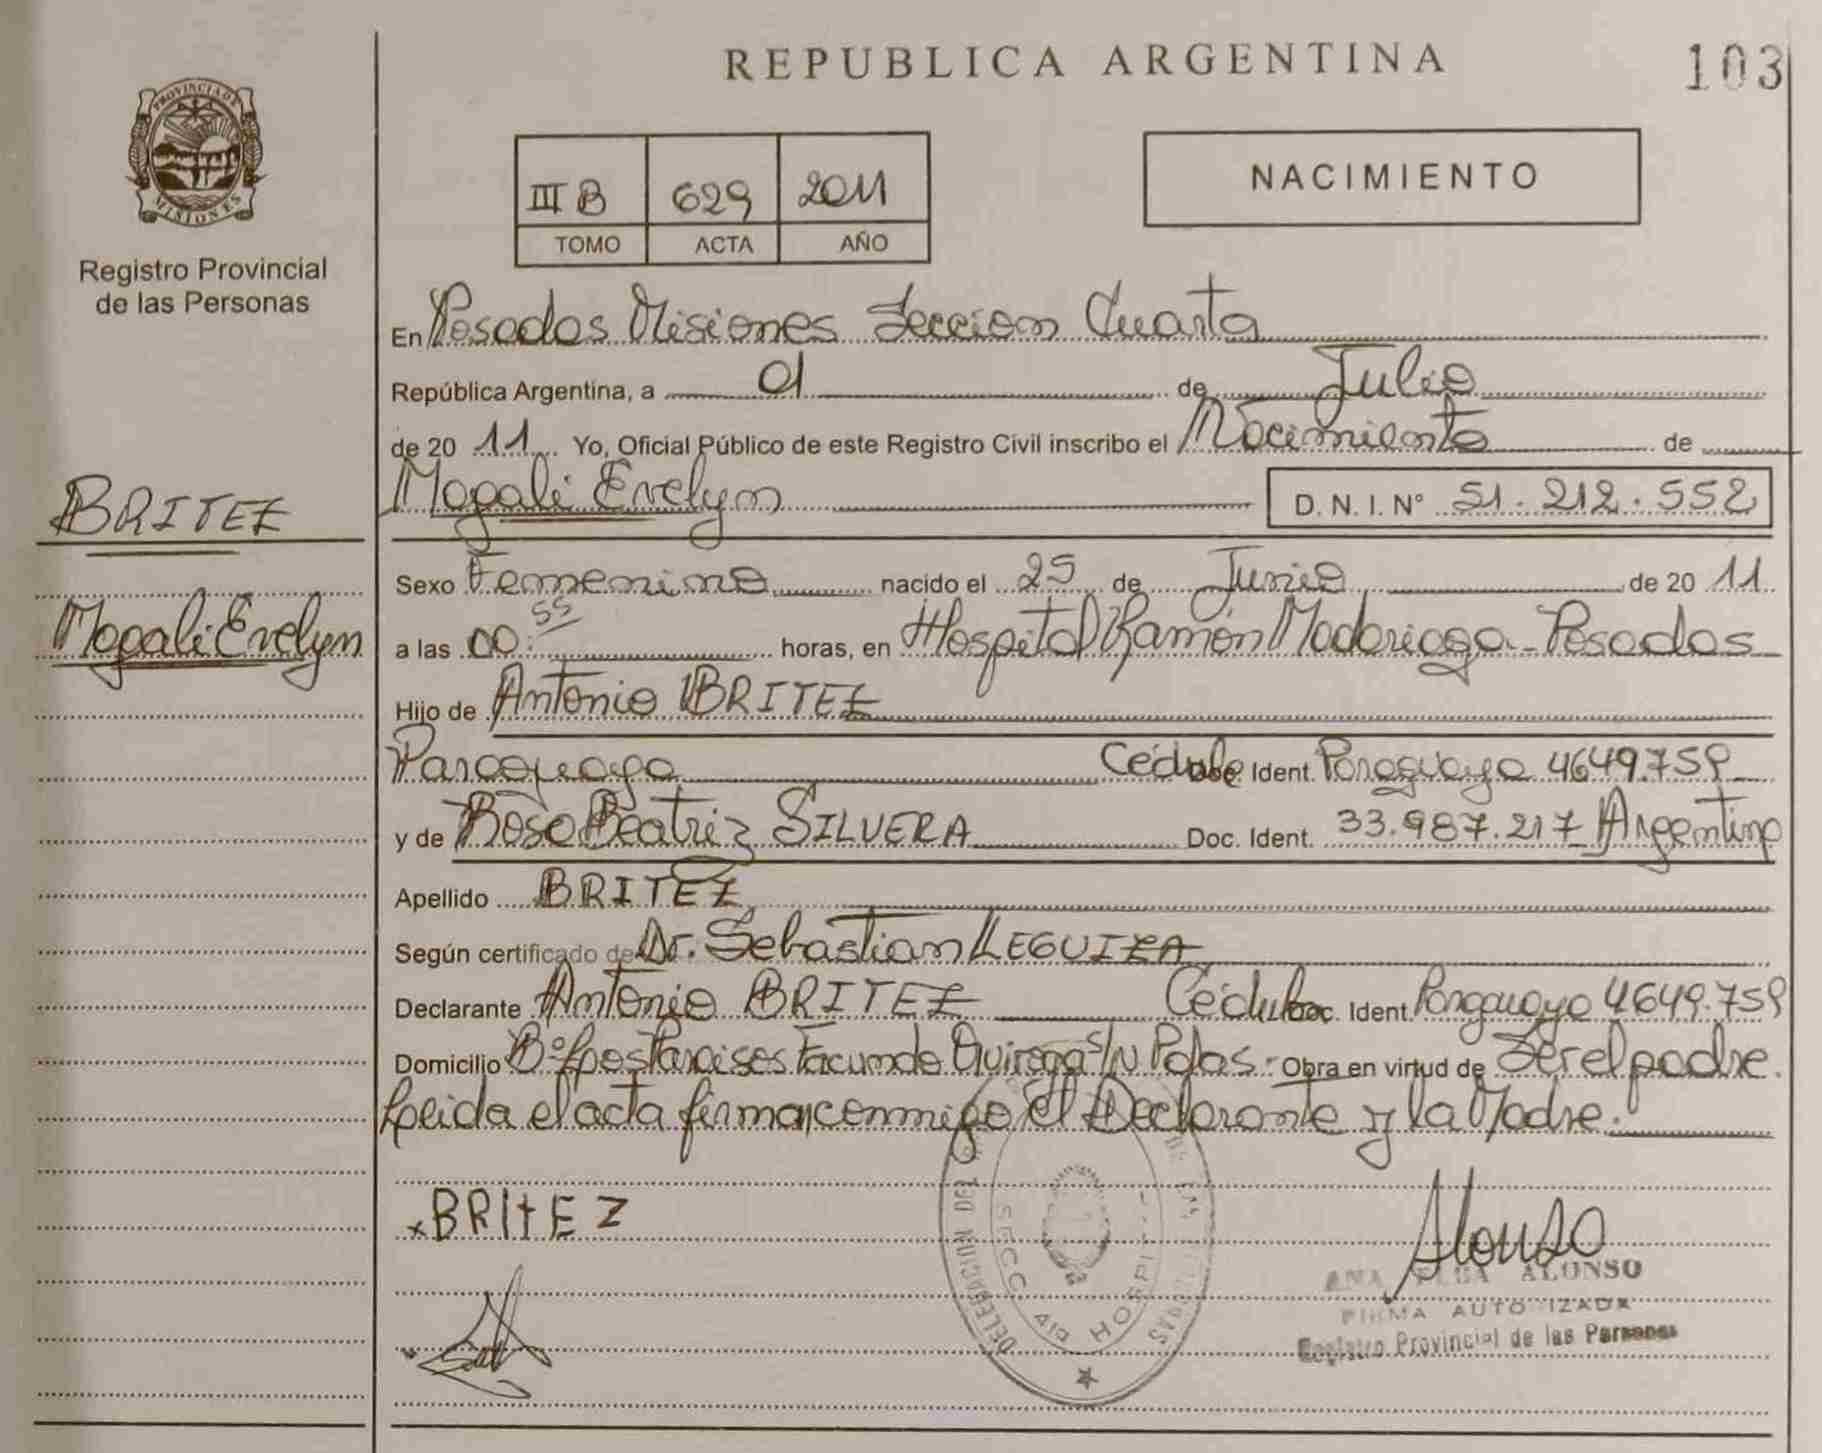 REPUBLICA ARGENTINA
103
PROVINCIA DE
MISIONES
Registro Provincial
de las Personas
III B 629 2011
TOMO ACTA AÑO
NACIMIENTO
En Posadas Misiones Seccion Cuarta
República Argentina, a 01 de Julio
de 20 11 Yo, Oficial Público de este Registro Civil inscribo el Nacimiento de
Magali Evelyn D. N. I. N° 51.212.552
BRITEZ
Magali Evelyn
Sexo Femenino nacido el 25 de Junio de 20 11
a las 00:55 horas, en Hospital Ramón Madariaga - Posadas
Hijo de Antonio BRITEZ
Paraguayo Cédula Doc. Ident. Paraguaya 4649.759
y de Rosa Beatriz SILVERA Doc. Ident. 33.987.217 Argentina
Apellido BRITEZ
Según certificado de Dr. Sebastian LEGUIZA
Declarante Antonio BRITEZ Cédula Doc. Ident. Paraguaya 4649.759
Domicilio B° Los Paraisos Facundo Quiroga S/N Pdas - Obra en virtud de Ser el padre.
Leida el acta firma conmigo el Declarante y la Madre.
x BRITEZ
Alonso
ANA ALONSO
FIRMA AUTORIZADA
Registro Provincial de las Personas
SECC 4ta HOSPITAL